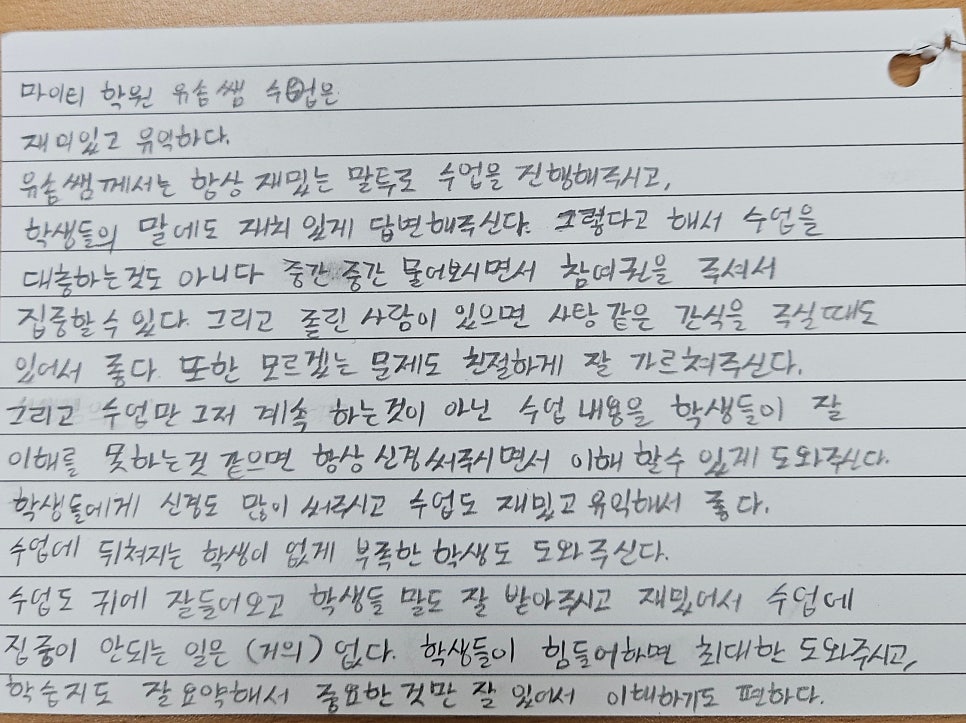 마이티 학원 유솜쌤 수업은
재미있고 유익하다.
유솜쌤께서는 항상 재밌는 말투로 수업을 진행해주시고,
학생들의 말에도 재치 있게 답변해주신다. 그렇다고 해서 수업을
대충하는것도 아니다 중간 중간 물어보시면서 참여권을 주셔서
집중할 수 있다. 그리고 졸린 사람이 있으면 사탕 같은 간식을 주실때도
있어서 좋다. 또한 모르겠는 문제도 친절하게 잘 가르쳐주신다.
그리고 수업만 그저 계속 하는것이 아닌 수업 내용을 학생들이 잘
이해를 못하는것 같으면 항상 신경써주시면서 이해 할수 있게 도와주신다.
학생들에게 신경도 많이 써주시고 수업도 재밌고 유익해서 좋다.
수업에 뒤쳐지는 학생이 없게 부족한 학생도 도와주신다.
수업도 귀에 잘들어오고 학생들 말도 잘 받아주시고 재밌어서 수업에
집중이 안되는 일은 (거의) 없다. 학생들이 힘들어하면 최대한 도와주시고,
학습지도 잘 요약해서 중요한것만 잘 있어서 이해하기도 편하다.